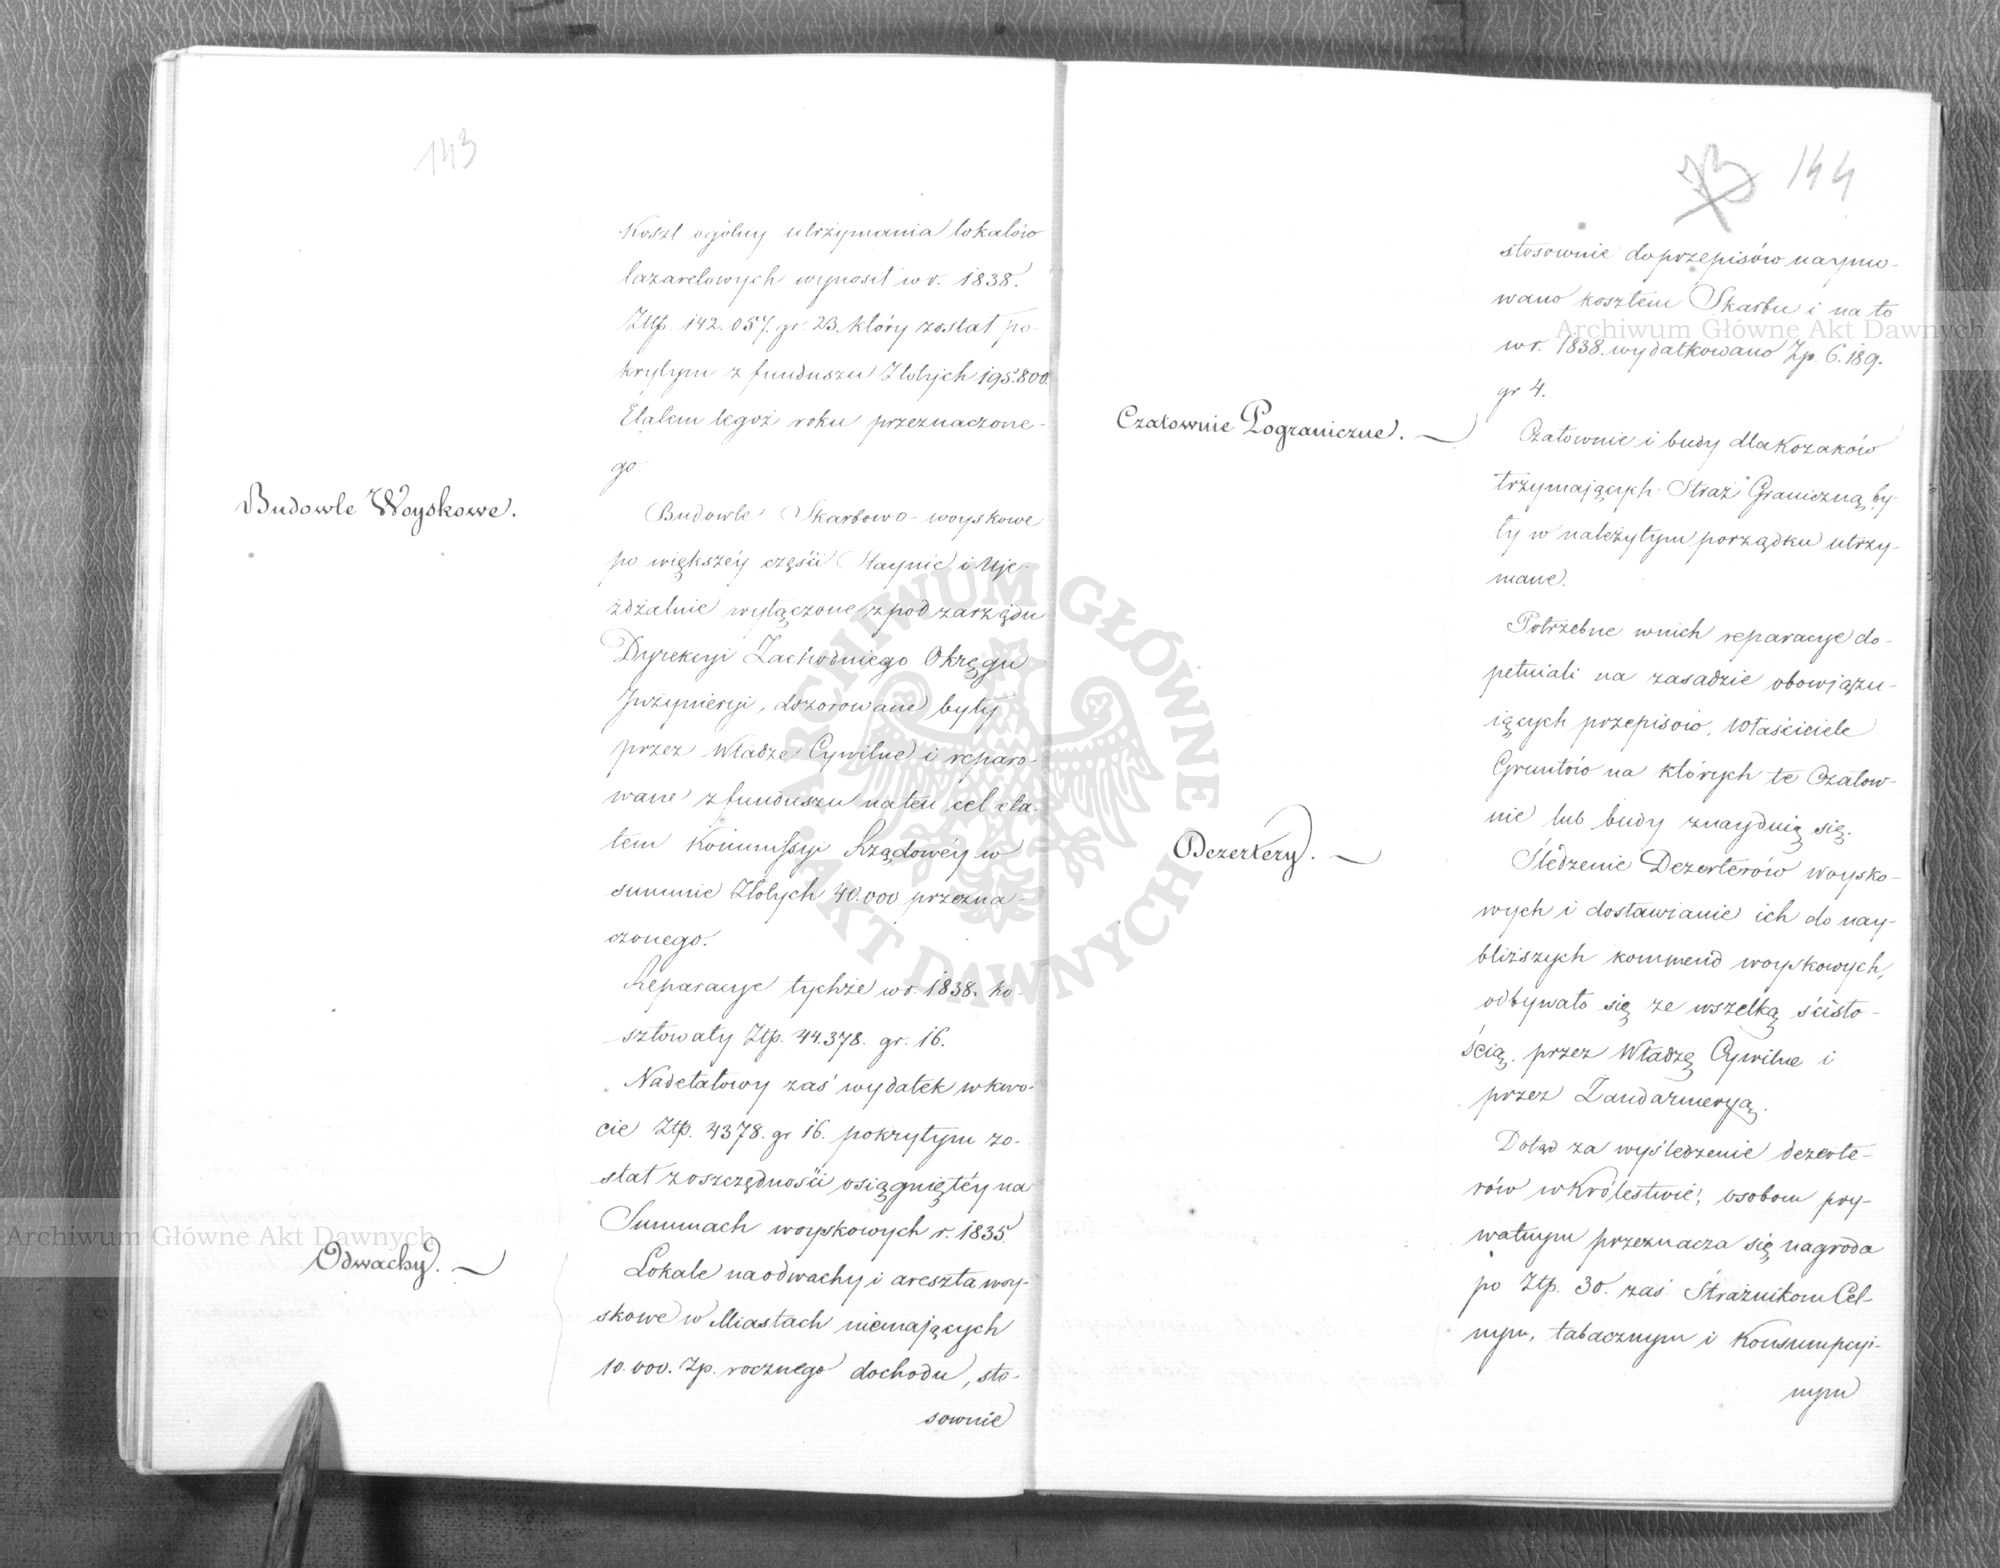 143
Koszt ogólny utrzymania lokalów
lazaretowych wynosił w r. 1838.
Ztp. 142.057. gr. 23. który został po-
krytym z funduszu Złotych 195.800.
Etatem tegoż roku przeznaczone-
go.
Budowle Woyskowe.
Budowle Skarbowo-woyskowe
po większéy części Staynie i Uje-
żdżalnie wyłączone z pod zarządu
Dyrekcyi Zachodniego Okręgu
Inżynieryi, dozorowane były
przez Władze Cywilne i reparo-
wane z funduszu na ten cel eta-
tem Kommissyi Rządowéy w
summie Złotych 40.000 przezna-
czonego.
Reparacye tychże w r. 1838. ko-
sztowały Ztp. 44.378. gr. 16.
Nadetatowy zaś wydatek w kwo-
cie Ztp. 4378. gr 16. pokrytym zo-
stał z oszczędności osiągniętéy na
Summach woyskowych r. 1835.
Odwachy.
Lokale na odwachy i areszta woy-
skowe w Miastach niemających
10.000. Zp. rocznego dochodu, sto-
sownie
144
stosownie do przepisów naymo-
wano kosztem Skarbu i na to
w r. 1838. wydatkowano Zp. 6.189.
gr 4.
Czatownie Pograniczne.
Czatownie i budy dla Kozaków
trzymających Straż Graniczną by-
ły w należytym porządku utrzy-
mane.
Potrzebne w nich reparacye do-
pełniali na zasadzie obowiązu-
iących przepisów, Właściciele
Gruntów na których te Czatow-
nie lub budy znayduią się.
Dezertery.
Śledzenie Dezerterów woysko-
wych i dostawianie ich do nay-
bliższych kommend woyskowych,
odbywało się ze wszelką ścisło-
ścią, przez Władzę Cywilne i
przez Żandarmeryą.
Dotąd za wyśledzenie dezerte-
rów w Królestwie, osobom pry-
watnym przeznacza się nagroda
po Ztp. 30. zaś Strażnikom Cel-
nym, tabacznym i Konsumpcyi-
nym
Archiwum Główne Akt Dawnych
Archiwum Główne Akt Dawnych
ARCHIWUM GŁÓWNE AKT DAWNYCH